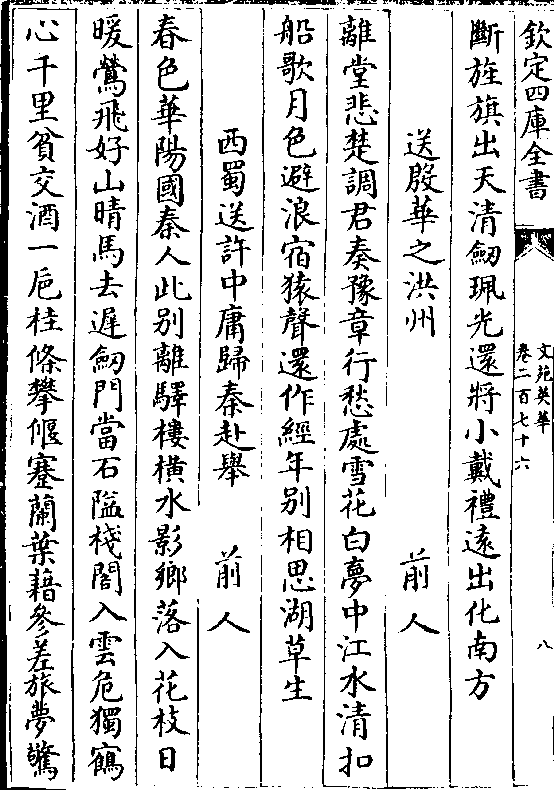 欽定四庫全書
文苑英華
卷二百七十六
八
斷旌旗出天清劒珮光還將小戴禮遠出化南方
送殷華之洪州 前人
離堂悲楚調君奏豫章行愁處雪花白夢中江水清扣
船歌月色避浪宿猿聲還作經年别相思湖草生
西蜀送許中庸歸秦赴舉 前人
春色華陽國秦人此别離驛樓橫水影鄉落入花枝日
暖鶯飛好山晴馬去遲劒門當石隘棧閣入雲危獨鶴
心千里貧交酒一巵桂條攀偃蹇蘭葉藉參差旅夢驚